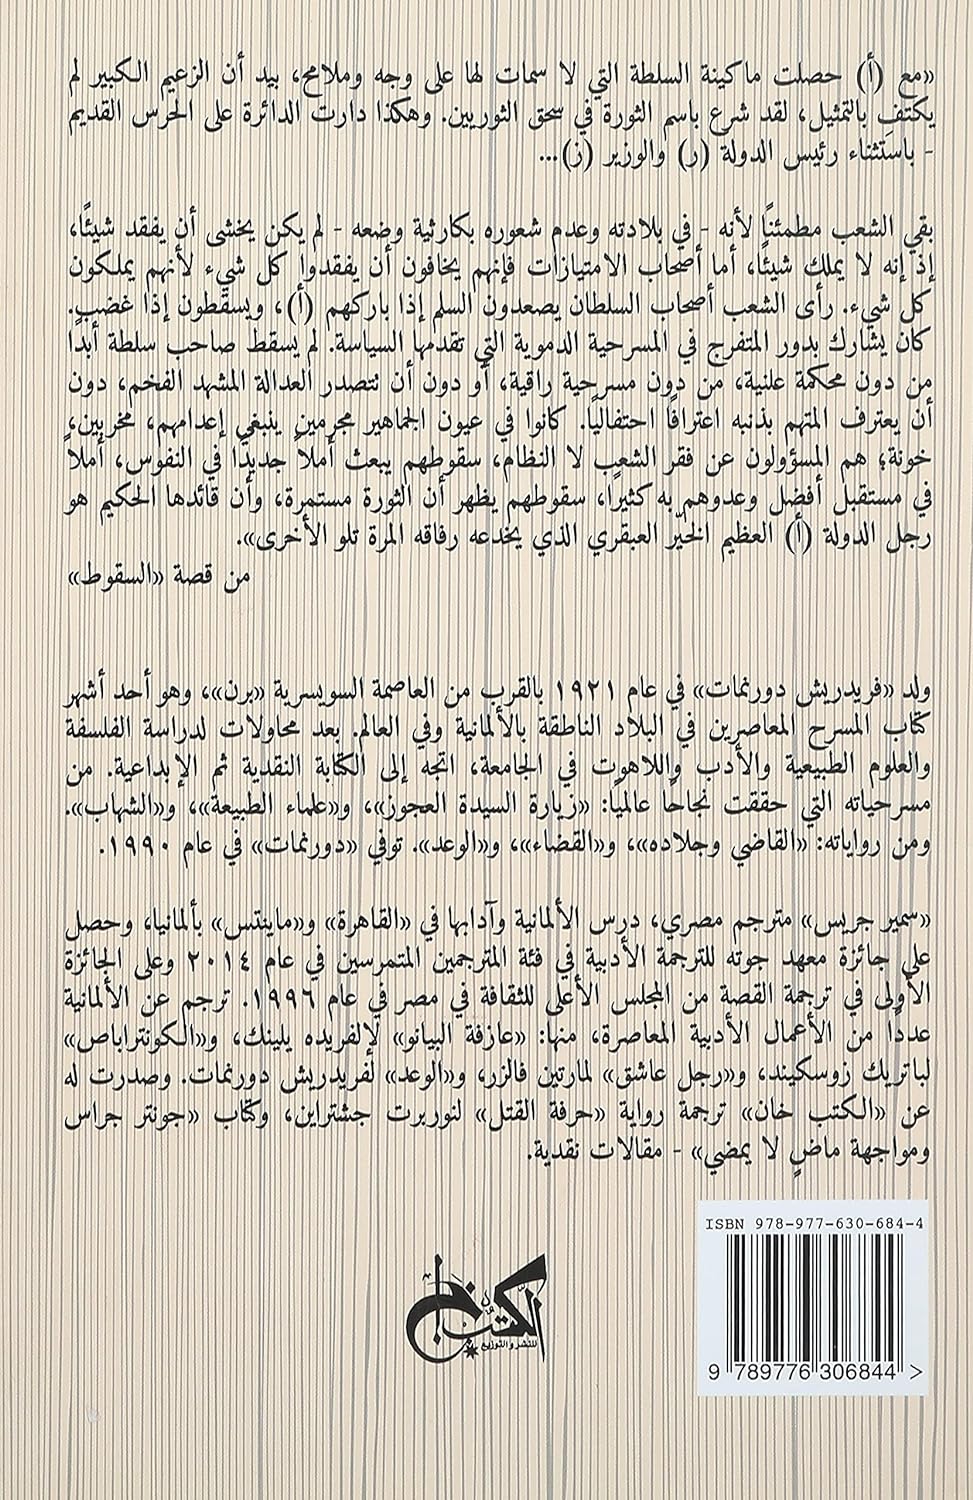 «مع (أ) حصلت ماكينة السلطة التي لا سمات لها على وجه وملامح، بيد أن الزعيم الكبير لم
يكتفِ بالتمثيل، لقد شرع باسم الثورة في سحق الثوريين. وهكذا دارت الدائرة على الحرس القديم
- باستثناء رئيس الدولة (ر) والوزير (ز)...
بقي الشعب مطمئنًا لأنه - في بلادته وعدم شعوره بكارثية وضعه - لم يكن يخشى أن يفقد شيئًا،
إذ إنه لا يملك شيئًا، أما أصحاب الامتيازات فإنهم يخافون أن يفقدوا كل شيء لأنهم يملكون
كل شيء. رأى الشعب أصحاب السلطان يصعدون السلم إذا باركهم (أ)، ويسقطون إذا غضب.
كان يشارك بدور المتفرج في المسرحية الدموية التي تقدمها السياسة. لم يسقط صاحب سلطة أبدًا
من دون محكمة علنية، من دون مسرحية راقية، أو دون أن تتصدر العدالة المشهد الفخم، دون
أن يعترف المتهم بذنبه اعترافًا احتفاليًا. كانوا في عيون الجماهير مجرمين ينبغي إعدامهم، مخربين،
خونة؛ هم المسؤولون عن فقر الشعب لا النظام، سقوطهم يبعث أملاً جديدًا في النفوس، أملاً
في مستقبل أفضل وعدوهم به كثيرًا، سقوطهم يظهر أن الثورة مستمرة، وأن قائدها الحكيم هو
رجل الدولة (أ) العظيم الخيّر العبقري الذي يخدعه رفاقه المرة تلو الأخرى».
من قصة «السقوط»
ولد «فريدريش دورنمات» في عام ١٩٢١ بالقرب من العاصمة السويسرية «برن»، وهو أحد أشهر
كتاب المسرح المعاصرين في البلاد الناطقة بالألمانية وفي العالم. بعد محاولات لدراسة الفلسفة
والعلوم الطبيعية والأدب واللاهوت في الجامعة، اتجه إلى الكتابة النقدية ثم الإبداعية. من
مسرحياته التي حققت نجاحًا عالميًا: «زيارة السيدة العجوز»، و«علماء الطبيعة»، و«الشهاب».
ومن رواياته: «القاضي وجلاده»، و«القضاء»، و«الوعد». توفي «دورنمات» في عام ١٩٩٠.
«سمير جريس» مترجم مصري، درس الألمانية وآدابها في «القاهرة» و«ماينتس» بألمانيا، وحصل
على جائزة معهد جوته للترجمة الأدبية في فئة المترجمين المتمرسين في عام ٢٠١٤ وعلى الجائزة
الأولى في ترجمة القصة من المجلس الأعلى للثقافة في مصر في عام ١٩٩٦. ترجم عن الألمانية
عددًا من الأعمال الأدبية المعاصرة، منها: «عازفة البيانو» لإلفريده يلينك، و«الكونتراباص»
لباتريك زوسكيند، و«رجل عاشق» لمارتين فالزر، و«الوعد» لفريدريش دورنمات. وصدرت له
عن «الكتب خان» ترجمة رواية «حرفة القتل» لنوربرت جشتراين، وكتاب «جونتر جراس
ومواجهة ماضٍ لا يمضي» - مقالات نقدية.
ISBN 978-977-630-684-4
9 789776 306844 >
الكتب خان
للنشر والتوزيع